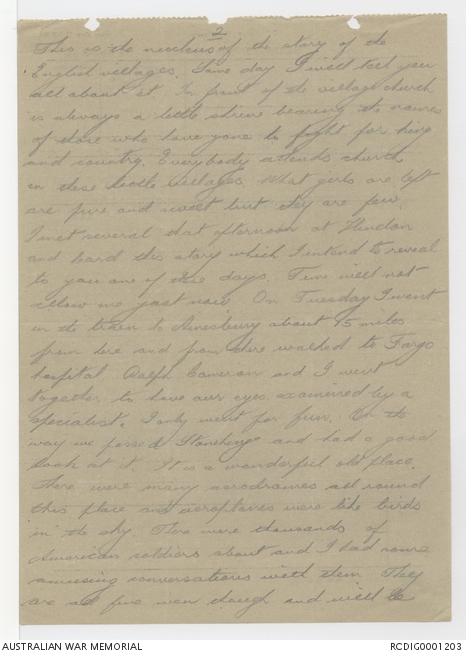 2
This is the nucleus of the story of the
English villages. Some day I will tell you
all about it. In front of the village church
is always a little shrine bearing the names
of those who have gone to fight for king
and country. Everybody attends church
in these little villages. What girls are left
are pure and sweet but they are few.
I met several that afternoon at
and heard this story which I intend to reveal
to you one of these days. Time will not
allow me just now. On Tuesday I went
in the train to Amesbury about 15 miles
from here and from there walked to Fargo
hospital. Ralph Cameron and I went
together to have our eyes examined by a
specialist. I only went for fun. On the
way we passed Stonehenge and had a good
look at it. It is a wonderful old place.
There were many aerodromes all round
this place and aeroplanes were like birds
in the sky. There were thousands of
American soldiers about and I had some
amusing conversations with them. They
are all fine men though and will be
AUSTRALIAN WAR MEMORIAL
RCDIG0001203